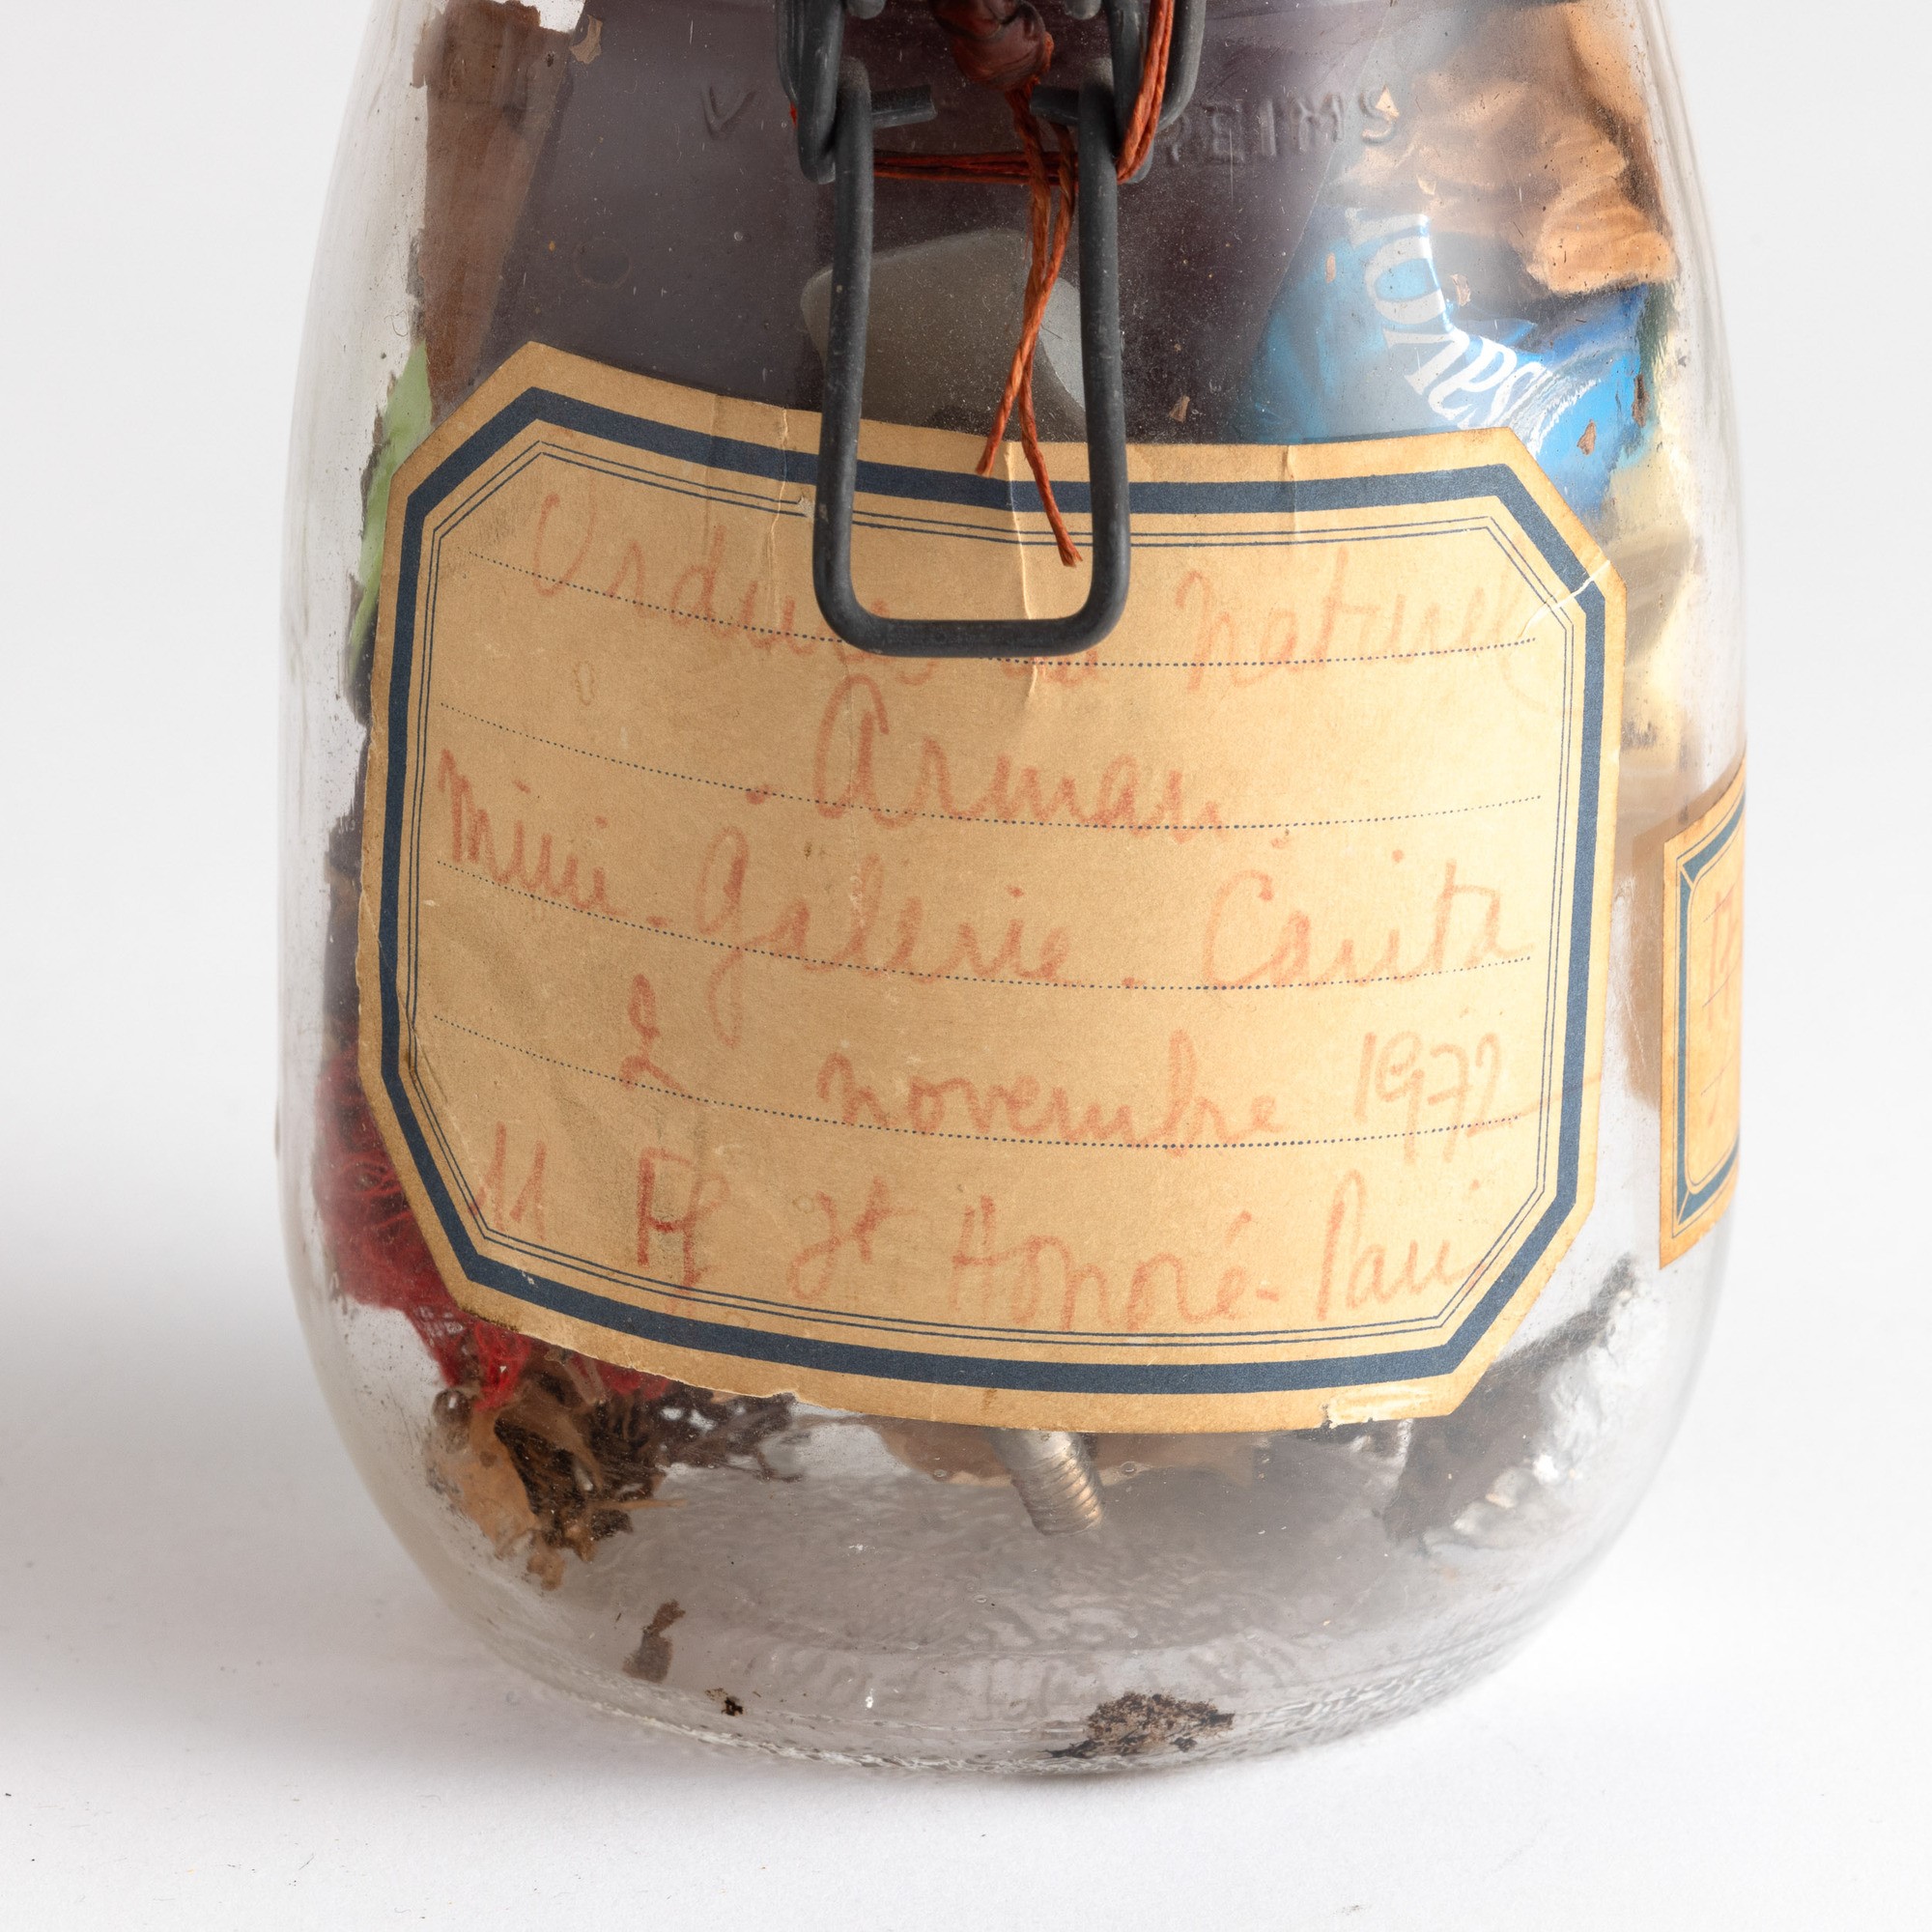 V REIMS
Savon
Ordures au naturel
. Arman.
Mini-Galerie-Carita
2 novembre 1972
11 Fg St Honoré-Paris